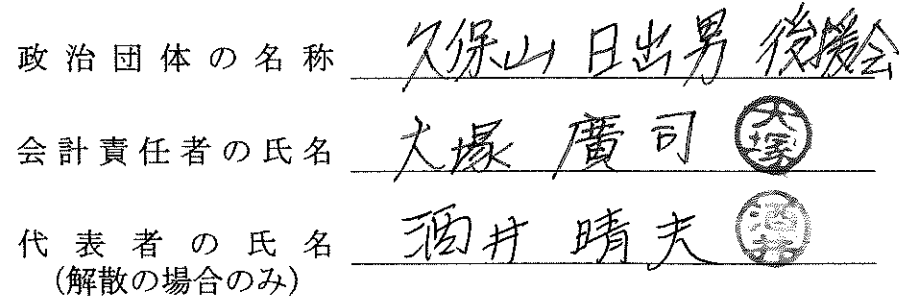 政治団体の名称 久保山 日出男 後援会
会計責任者の氏名 大塚 廣司 大塚
代表者の氏名 酒井 晴夫 酒井
(解散の場合のみ)